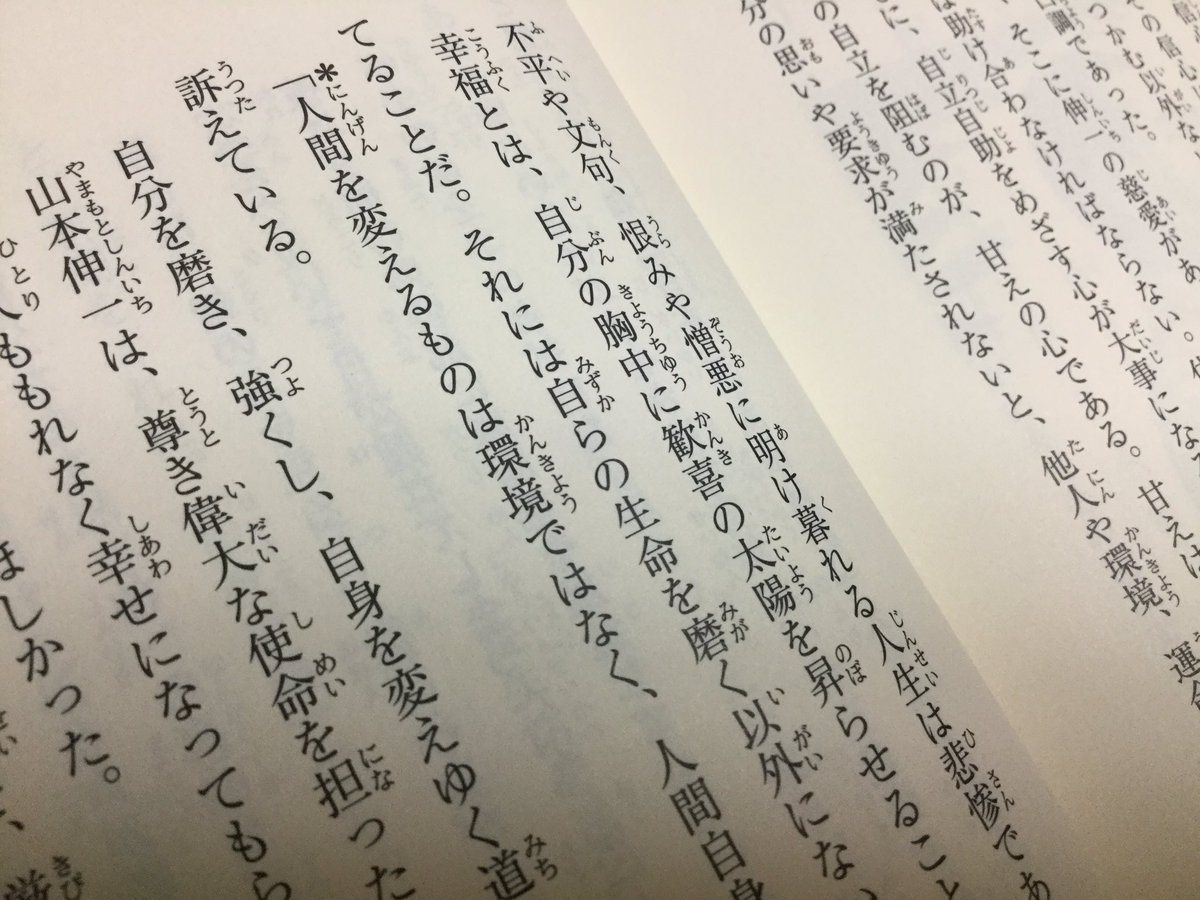 信心
ての信心
つかむ以外な
口調であった。
そこに伸一の慈愛があ
は助け合わなければならない。
に、自立自助をめざす心が大事にな
の自立を阻むのが、甘えの心である。甘えは
分の思いや要求が満たされないと、他人や環境、運命
不平や文句、恨みや憎悪に明け暮れる人生は悲惨であ
幸福とは、自分の胸中に歓喜の太陽を昇らせること
てることだ。それには自らの生命を磨く以外にな
「人間を変えるものは環境ではなく、人間自身
訴えている。
自分を磨き、強くし、自身を変えゆく道
山本伸一は、尊き偉大な使命を担った
人ももれなく幸せになってもら
ほしかった。